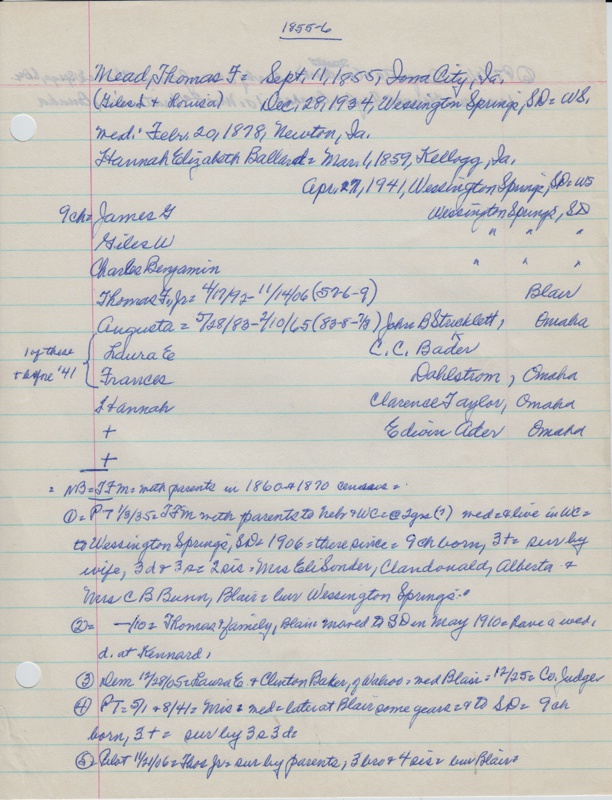 1855-6
Mead, Thomas F = Sept. 11, 1855, Iowa City, Ia.
(Giles & Lovisa) Dec. 28, 1934, Wessington Springs, SD = WS.
med. Febr. 20, 1878, Newton, Ia.
Hannah Elizabeth Ballard = Mar. 1, 1859, Kellogg, Ia.
Apr. 27, 1941, Wessington Springs, SD = WS
9ch = James G Wessington Springs, SD
Giles W " " "
Charles Benjamin " " "
Thomas F, Jr = 4/17/92 - 11/14/06 (5-6-9) Blair
Augusta = 5/28/83 - 2/10/65 (83-8-7/8) John B Stricklett, Omaha
1 of these + before '41
Laura E C. C. Bader
Frances Dahlstrom, Omaha
Hannah Clarence Taylor, Omaha
+ Edwin Ader Omaha
+
= NB = TFM = with parents in 1860 & 1870 census =
① = PT 1/3/35 = TFM with parents to Nebr & WC = @ yrs (?) med = & live in WC =
to Wessington Springs, SD = 1906 = there since = 9ch born, 3+ = sur by
wife, 3d & 3s = 2 sis = Mrs Eli Sonder, Clandonald, Alberta &
Mrs C B Bunn, Blair = bur Wessington Springs =
② = —/10 = Thomas & family, Blair moved to SD in May 1910 = have a wed.
d. at Kennard.
③ Dem 12/28/05 = Laura E. & Clinton Baker, of Wahoo = med Blair = 12/25 = Co. Judge
④ PT = 5/1 & 8/41 = Mrs = med = later at Blair some years = & to SD = 9ch
born, 3+ = sur by 3s 3d =
⑤ Pilot 11/21/06 = Thos Jr = sur by parents, 3 bro & 4 sis = bur Blair =